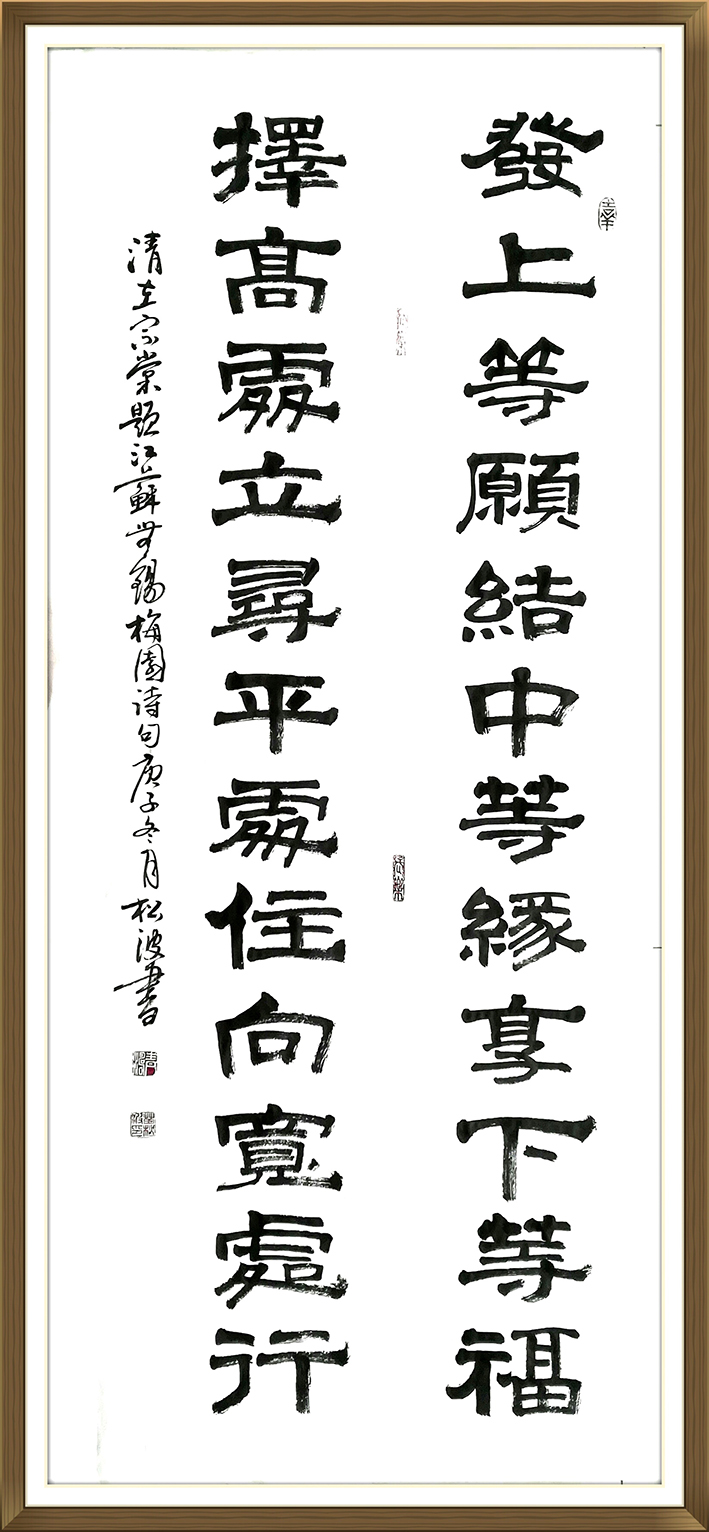 發上等願結中等緣享下等福
擇高處立尋平處住向寬處行
清左宗棠題江蘇無錫梅園詩句庚子冬月松波書